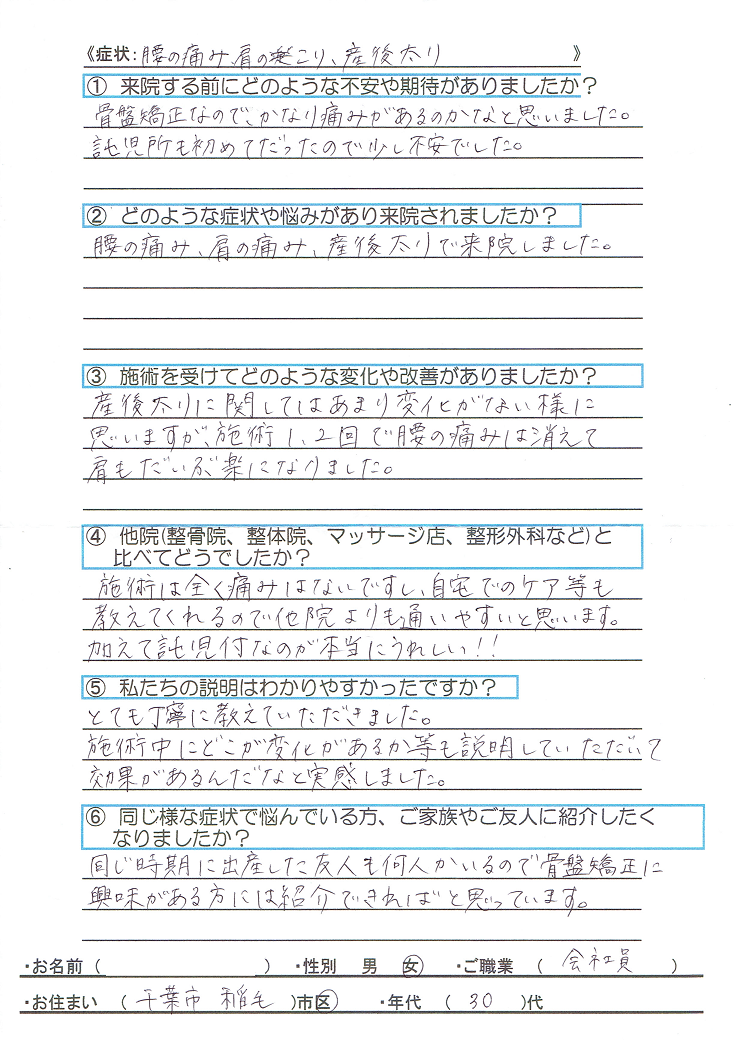 《症状：腰の痛み、肩のこり、産後太り》
① 来院する前にどのような不安や期待がありましたか？
骨盤矯正なので、かなり痛みがあるのかなと思いました。
託児所も初めてだったので少し不安でした。
② どのような症状や悩みがあり来院されましたか？
腰の痛み、肩の痛み、産後太りで来院しました。
③ 施術を受けてどのような変化や改善がありましたか？
産後太りに関してはあまり変化がない様に
思いますが、施術1、2回で腰の痛みは消えて
肩もだいぶ楽になりました。
④ 他院(整骨院、整体院、マッサージ店、整形外科など)と
比べてどうでしたか？
施術は全く痛みはないですし、自宅でのケア等も
教えてくれるので他院よりも通いやすいと思います。
加えて託児付なのが本当にうれしい！！
⑤ 私たちの説明はわかりやすかったですか？
とても丁寧に教えていただきました。
施術中にどこが変化があるか等も説明していただいて
効果があるんだなと実感しました。
⑥ 同じ様な症状で悩んでいる方、ご家族やご友人に紹介したく
なりましたか？
同じ時期に出産した友人も何人かいるので骨盤矯正に
興味がある方には紹介できればと思っています。
・お名前（ ） ・性別 男 女 ・ご職業 （ 会社員 ）
・お住まい （ 千葉市 稲毛 ）市区 ・年代 （ 30 ）代